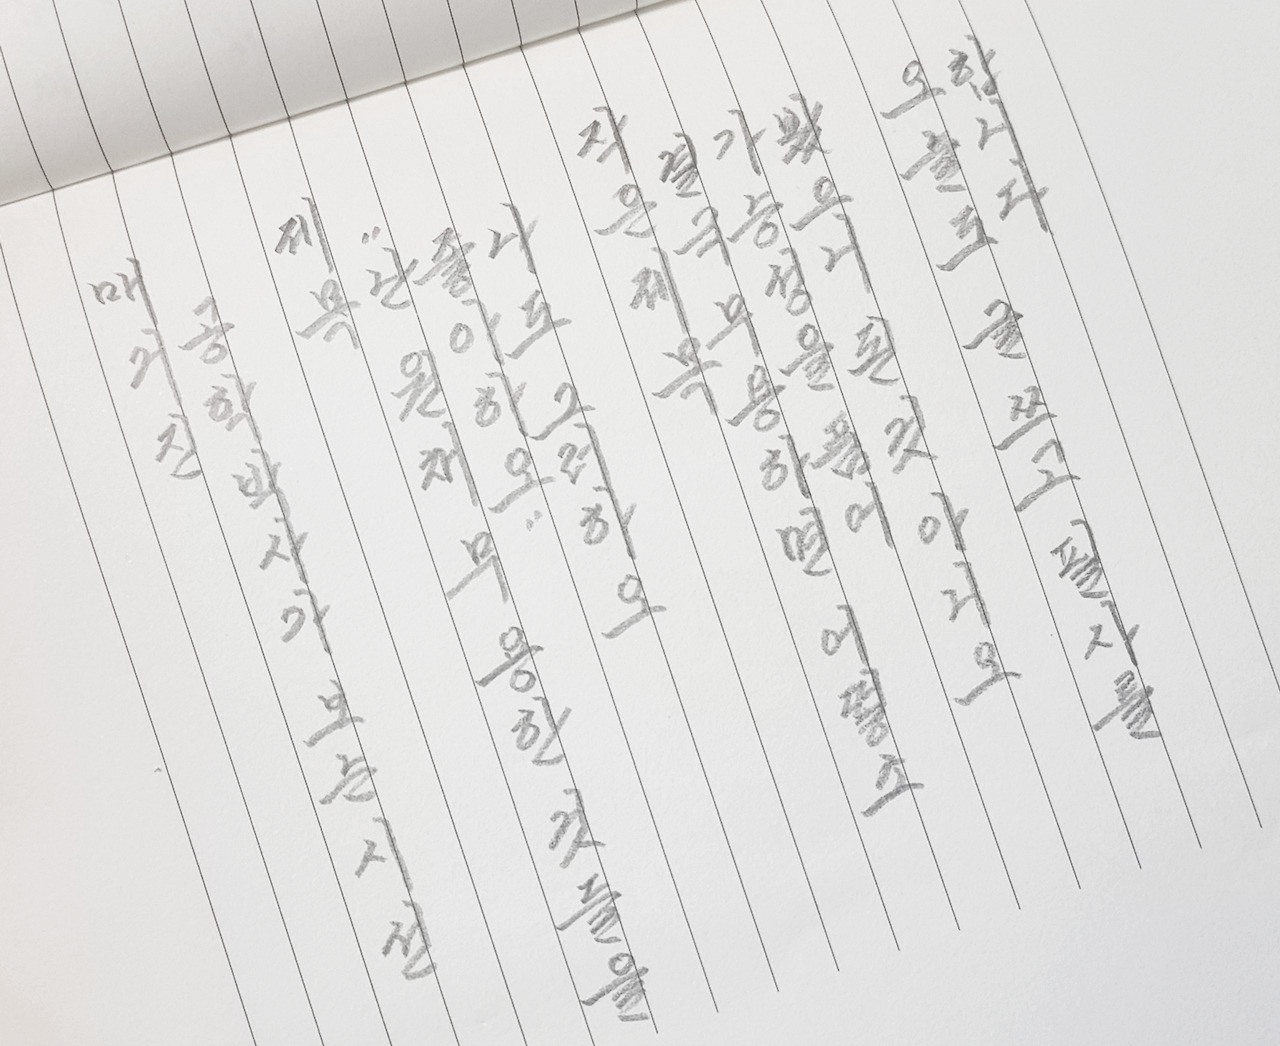 매거진
공학박사가 보는 시선
제목
"난 원채 무용한 것들을
좋아하오"
나도 그러하오
작은 제목
결국 무용하면 어떻소
가능성을 품어
봤으니 된 것 아니오
오늘도 글 쓰고 필사를
합니다